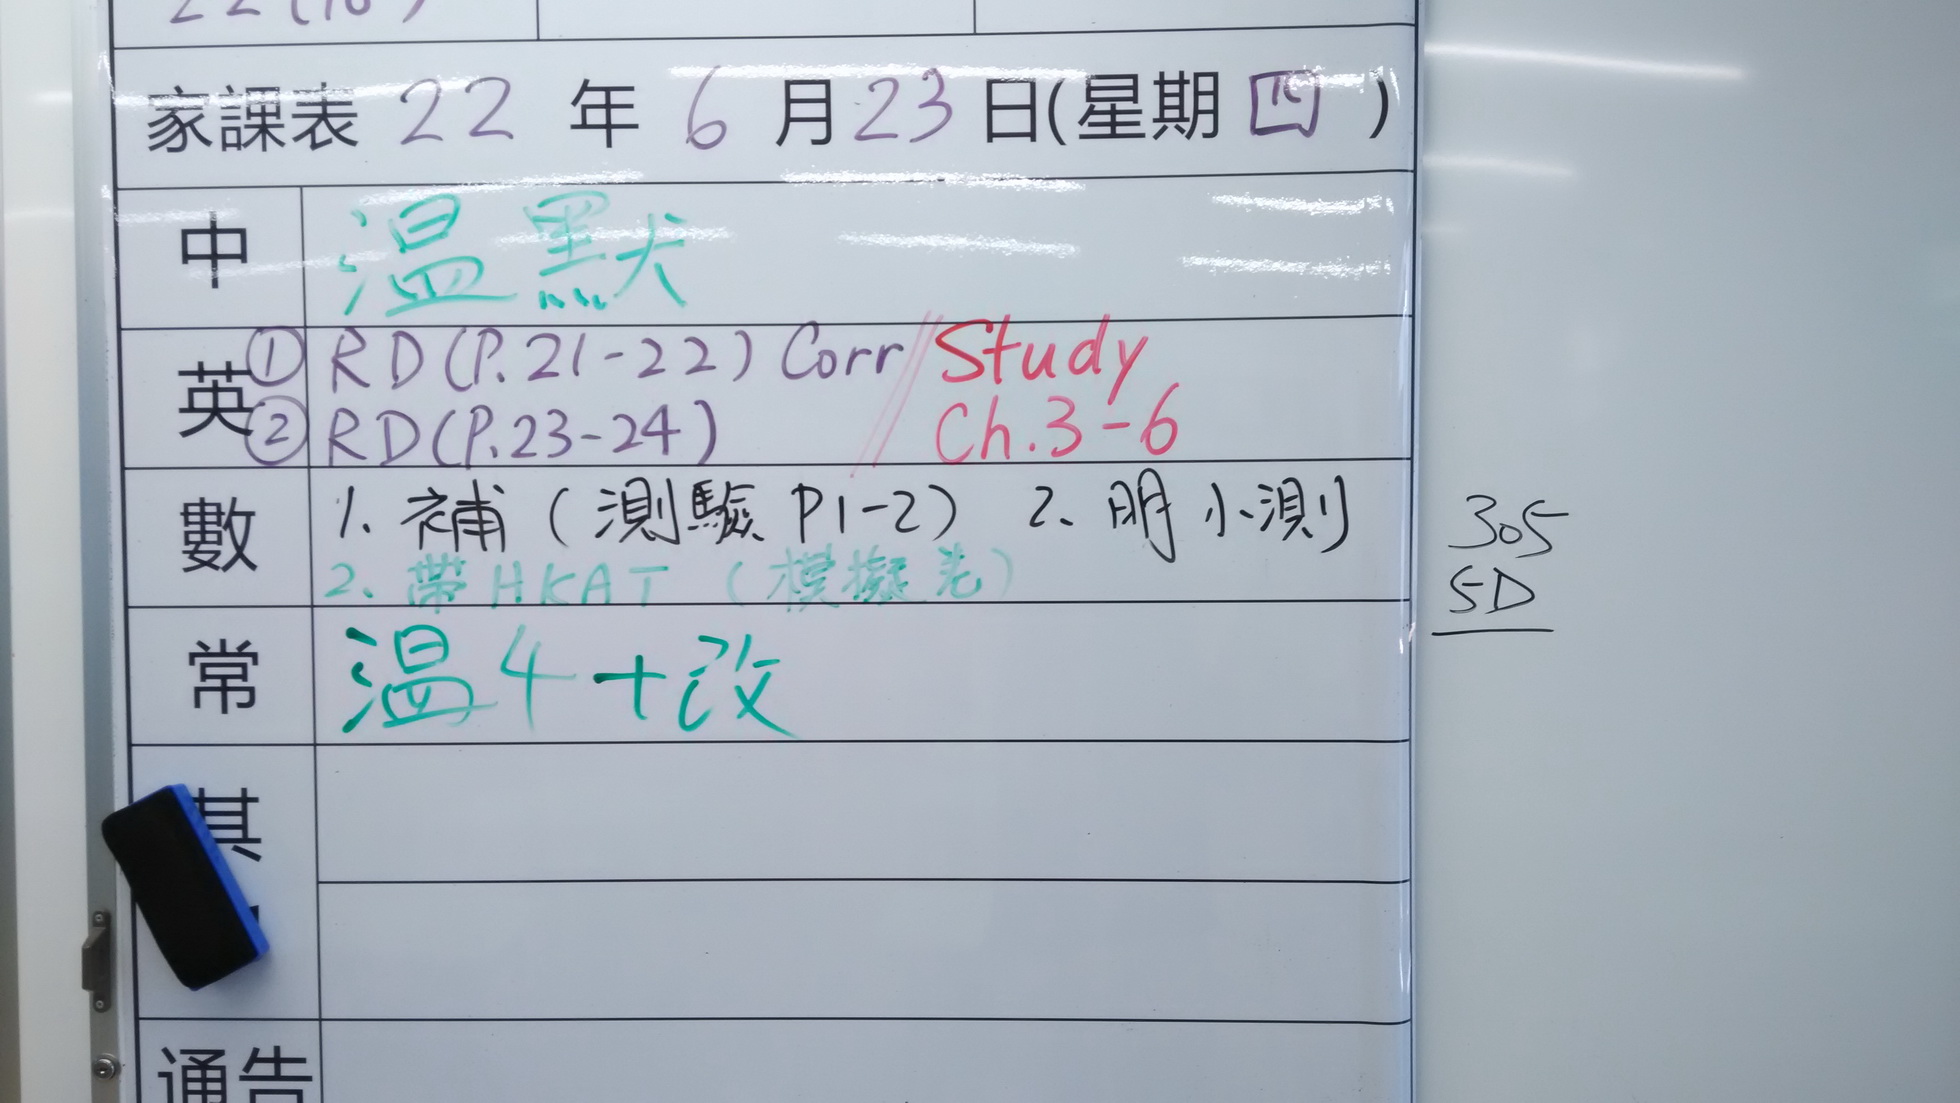 家課表 22 年 6 月 23 日(星期 四 )
中 温默
英 ① RD(P.21-22) Corr // Study
② RD(P.23-24) Ch.3-6
數 1. 補(測驗 P1-2) 2. 明小測
2. 帶 HKAT (模擬卷)
常 温4+改
其
通告
305
5D